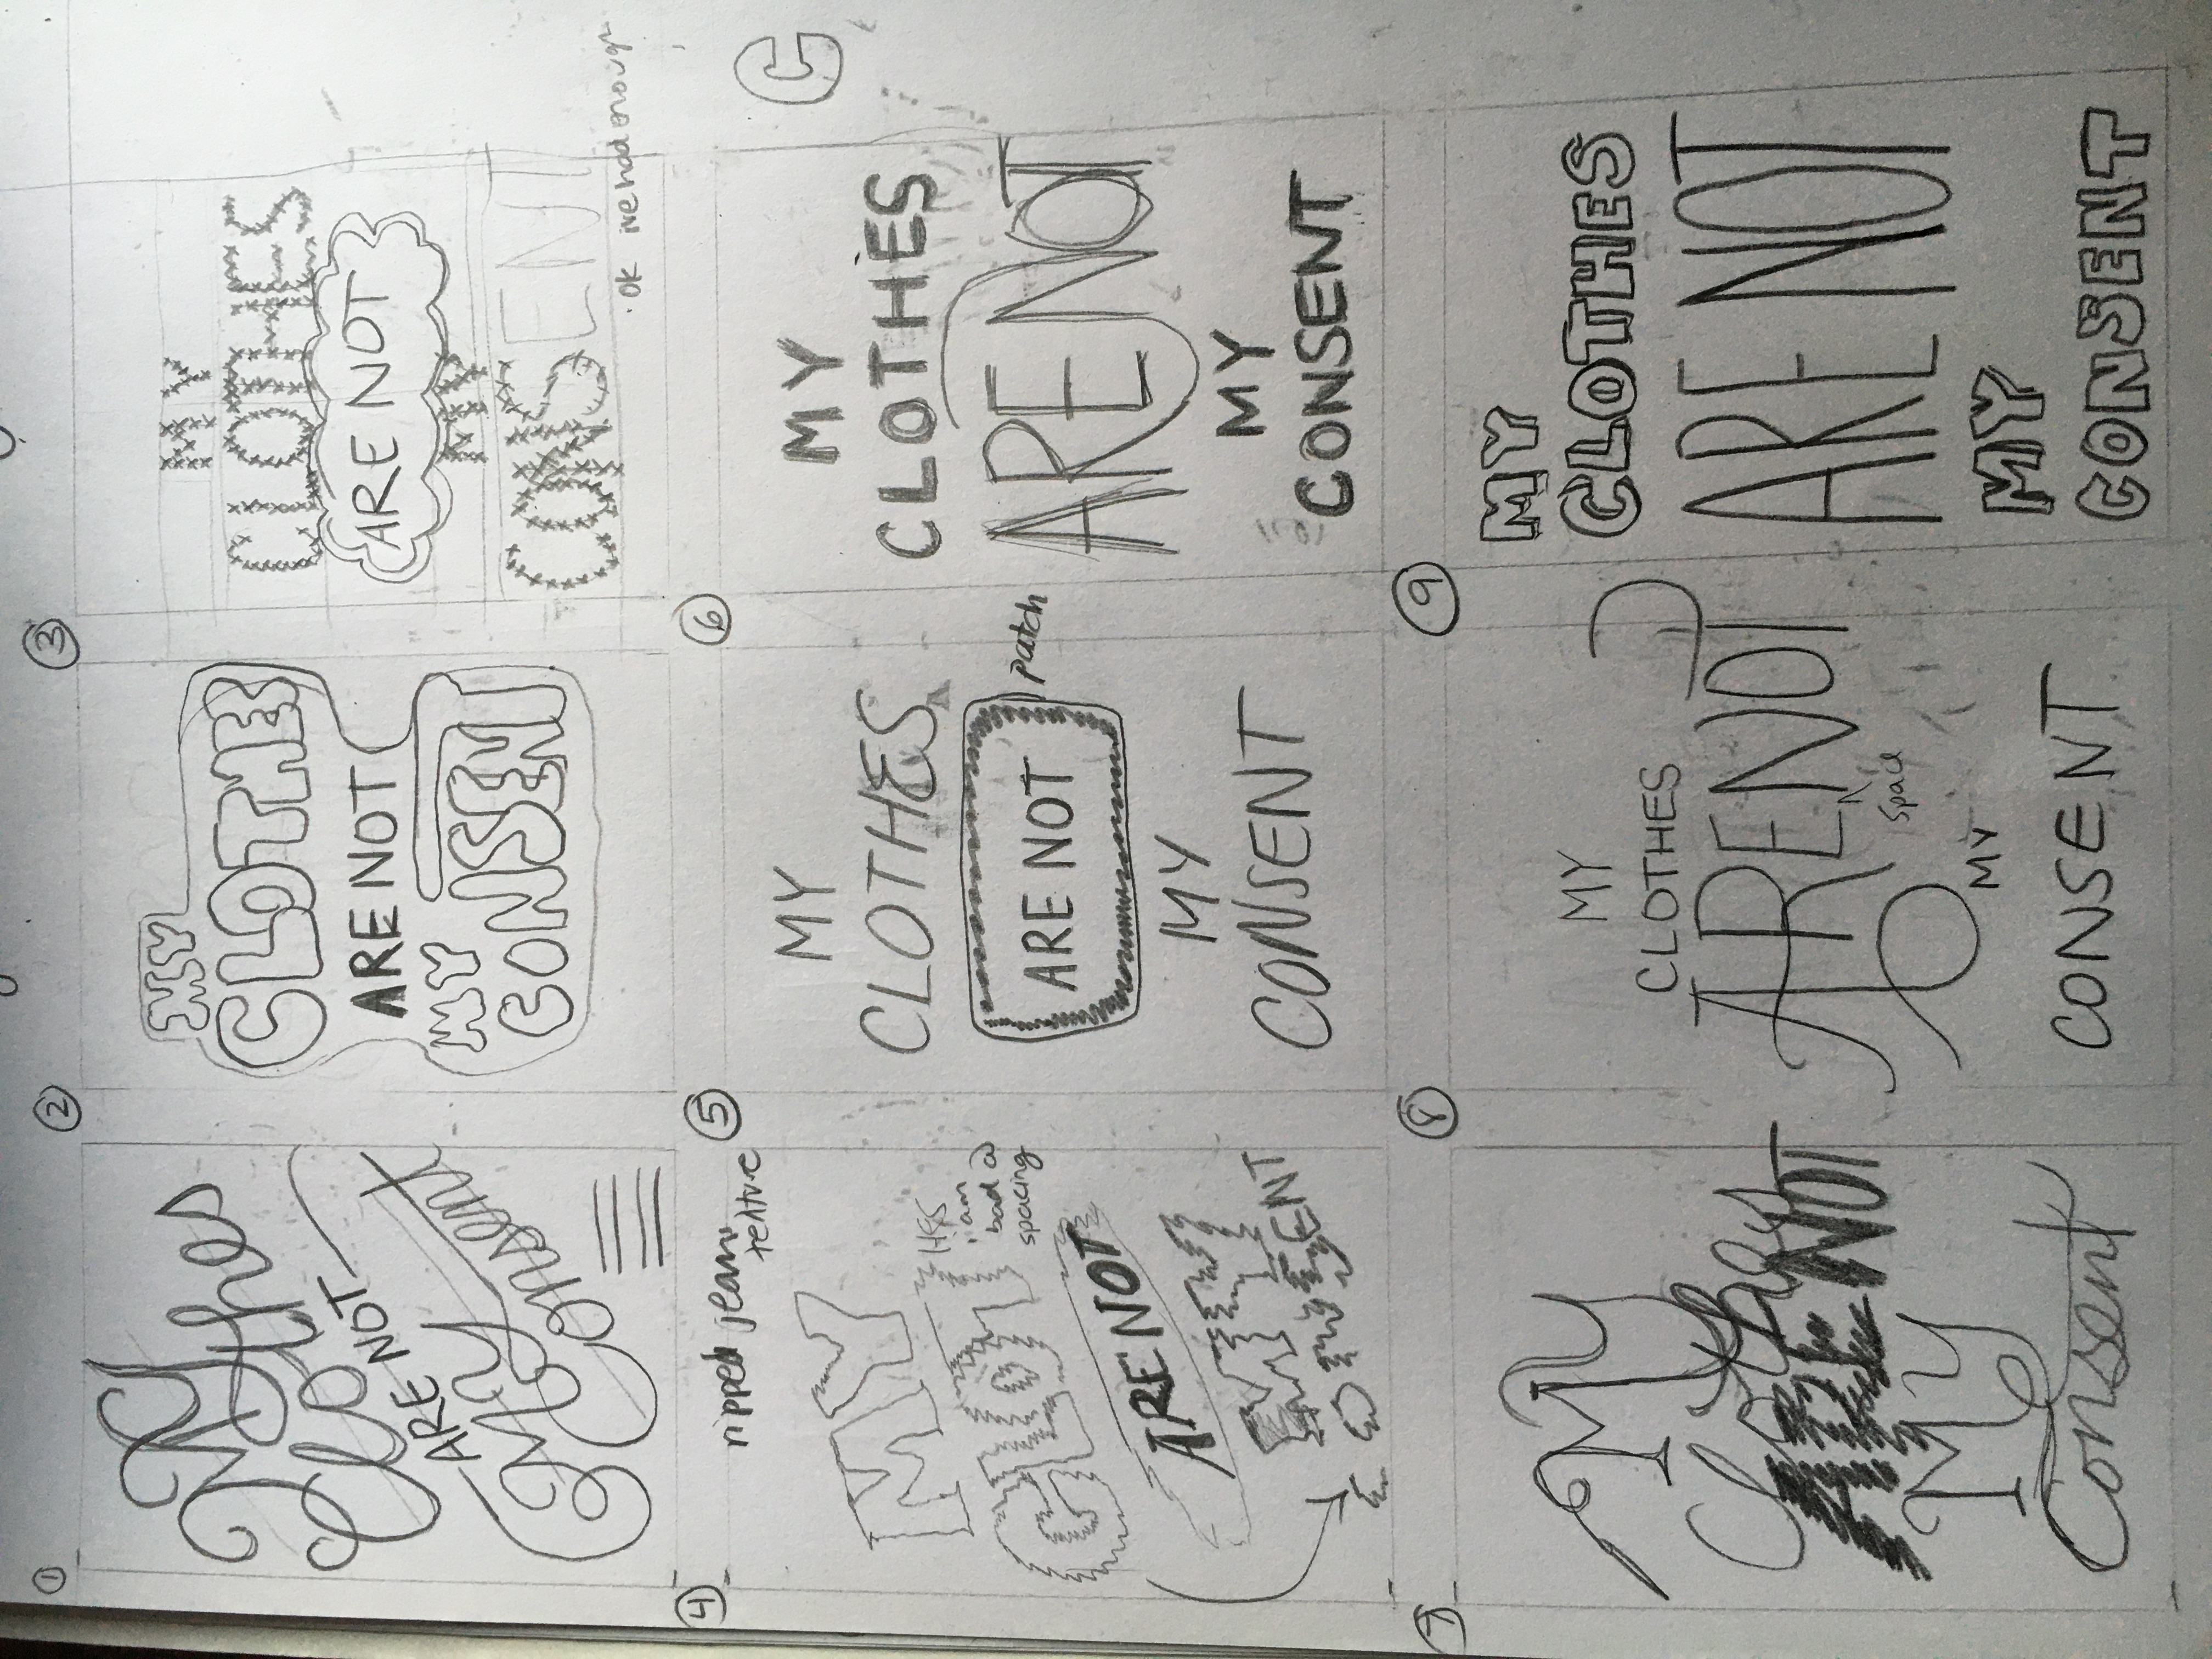 1
My
Clothes
ARE NOT
My
Consent
2
MY
CLOTHES
ARE NOT
MY
CONSENT
3
MY
CLOTHES
ARE NOT
MY
CONSENT
. OK ive had enough
4
ripped jeans
texture
MY
CLOTHES
i am
bad @
spacing
ARE NOT
MY
CONSENT
5
MY
CLOTHES
ARE NOT
patch
MY
CONSENT
6
G
MY
CLOTHES
ARE NOT
MY
CONSENT
7
My
Clothes
ARE NOT
My
Consent
8
MY
CLOTHES
ARE NOT
space
MY
CONSENT
9
MY
CLOTHES
ARE NOT
MY
CONSENT